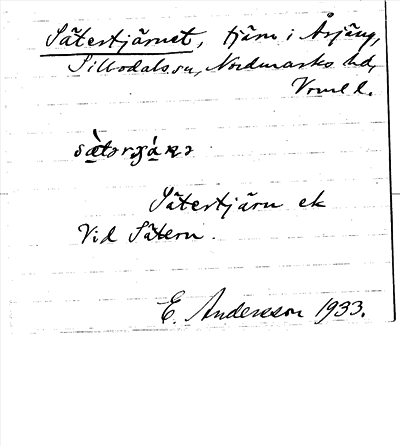 Sätertjärnet, tjärn i Årjäng,
Sillbodals sn, Nordmarks hd,
Vrml l.
Sätertjärn ek
Vid Sätern.
E. Andersson 1933.